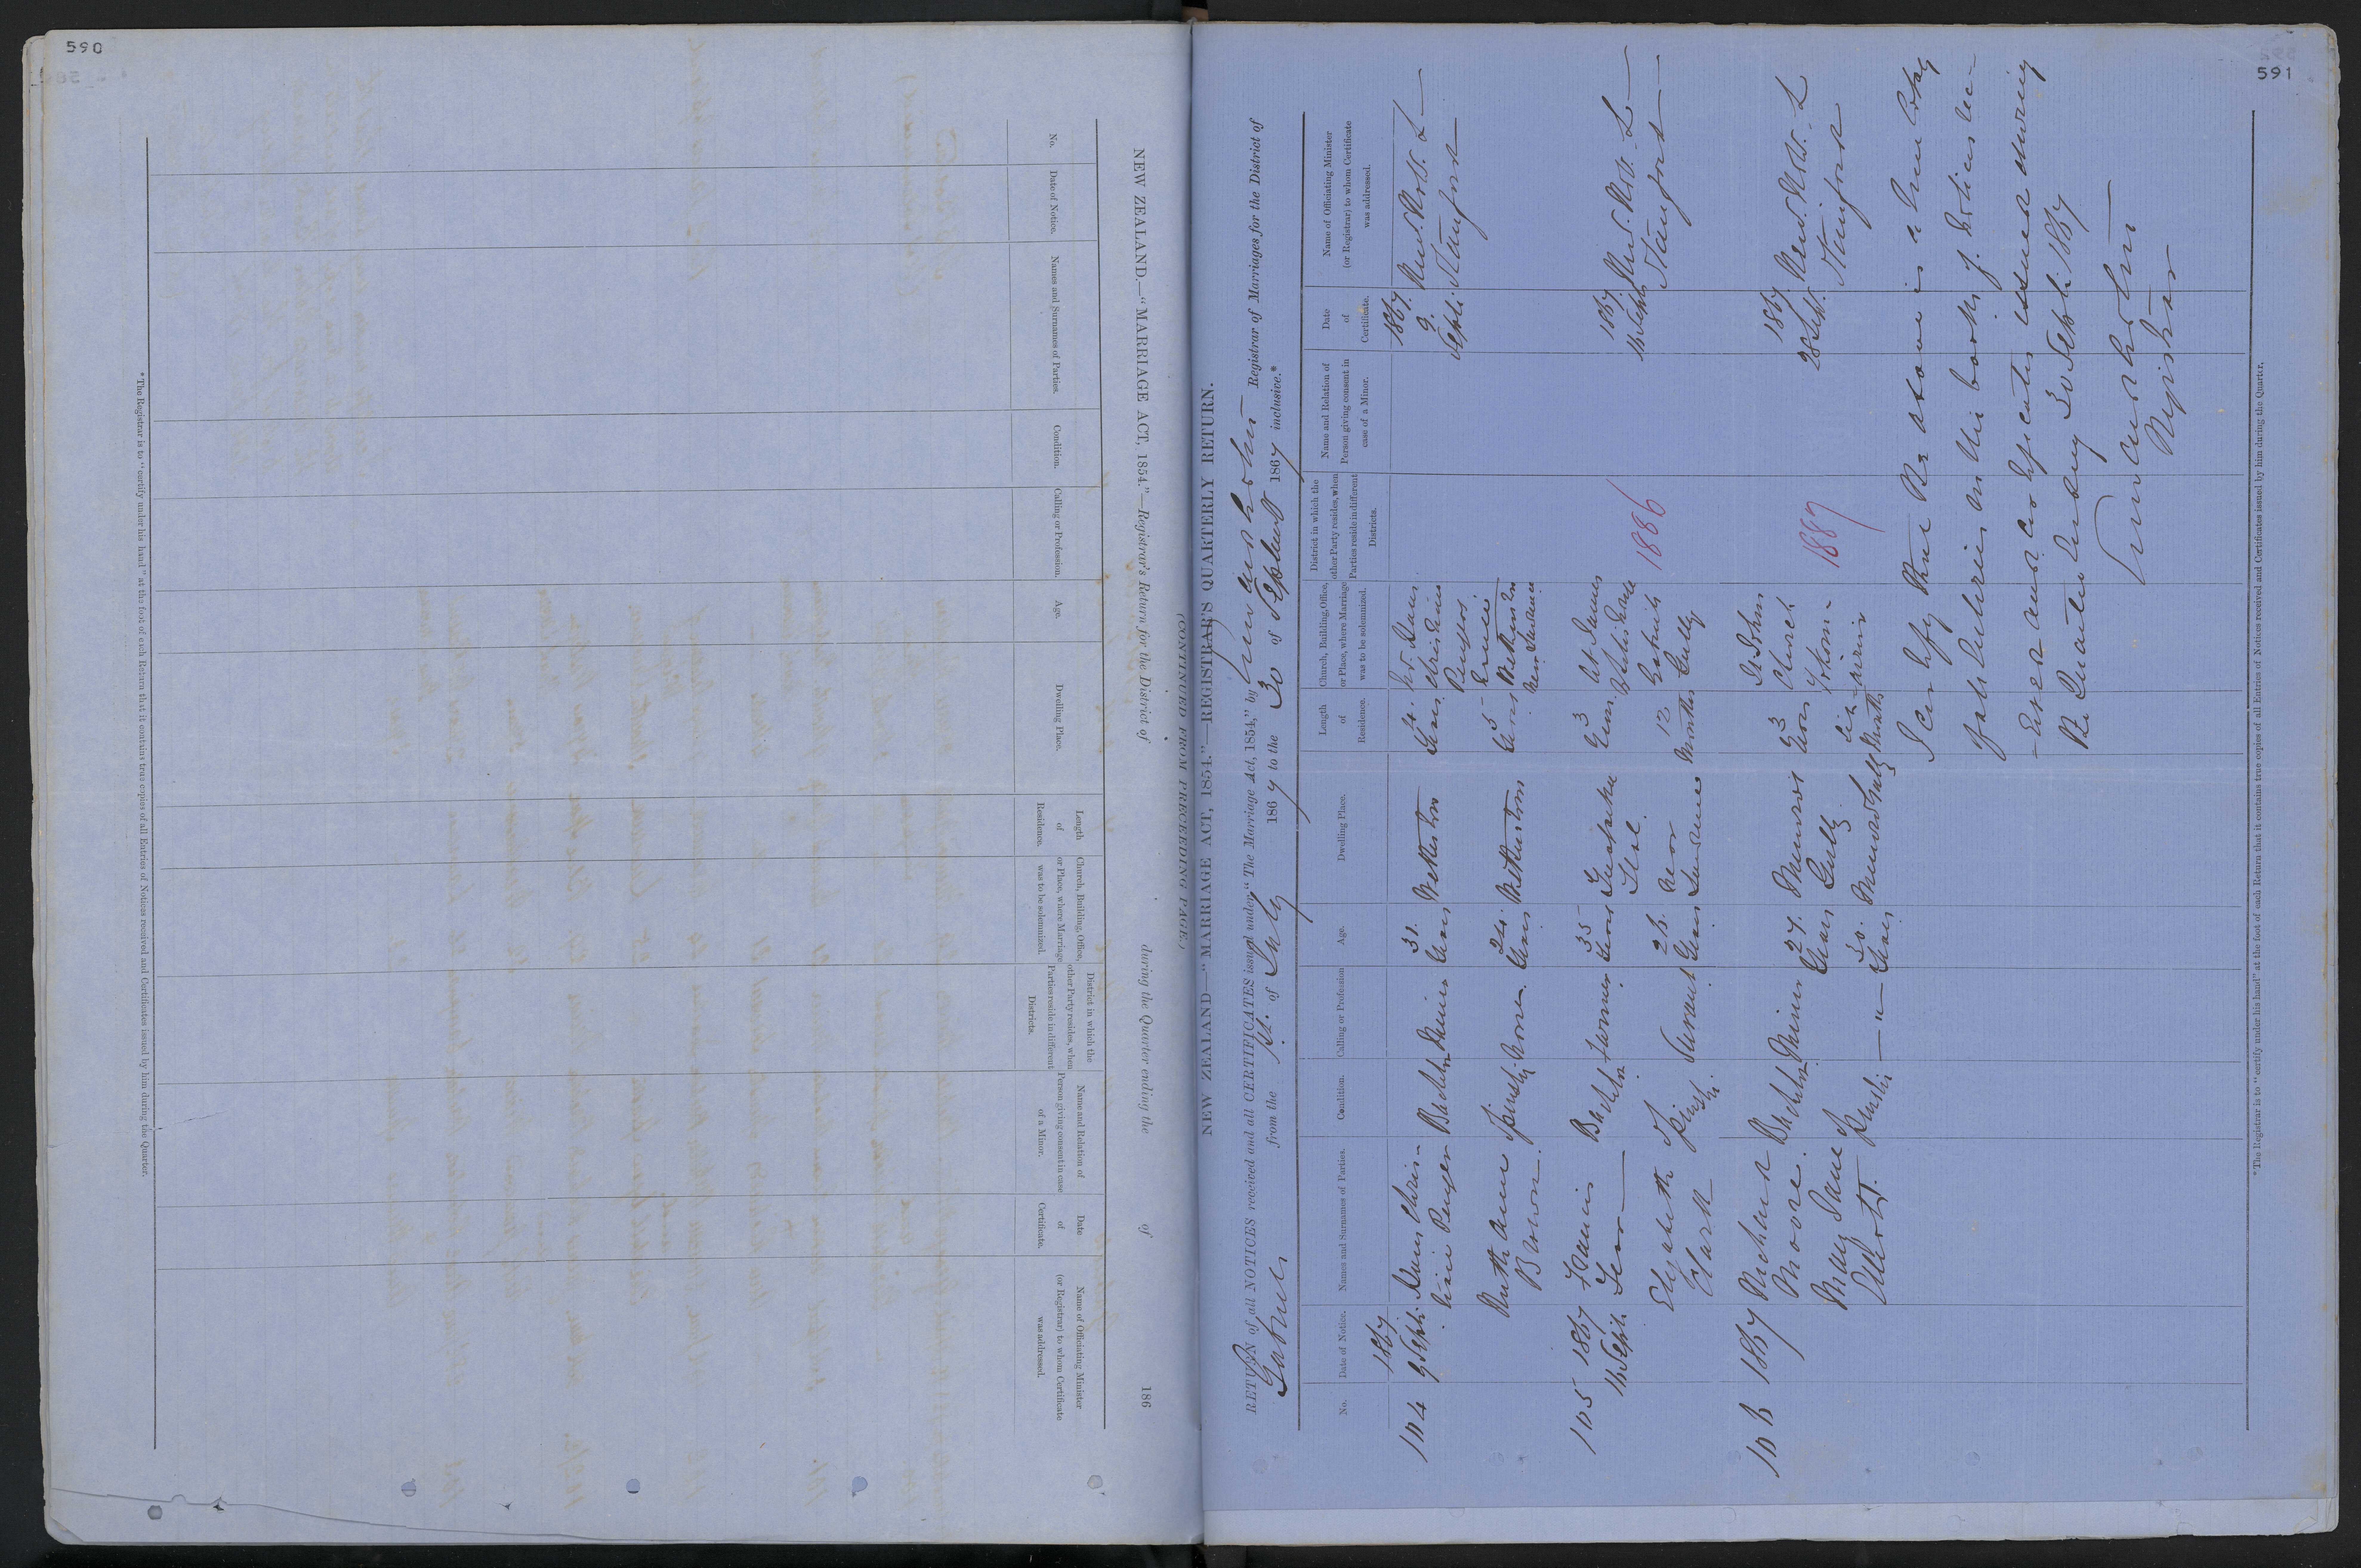 590
NEW ZEALAND.—"MARRIAGE ACT, 1854."—Registrar's Return for the District of during the Quarter ending the of 186
No.
Date of Notice.
Names and Surnames of Parties.
Condition.
Calling or Profession.
Age.
Dwelling Place.
Length
of
Residence.
Church, Building, Office,
or Place, where Marriage
was to be solemnized.
District in which the
other Party resides, when
Parties reside in different
Districts.
Name and Relation of
Person giving consent in case
of a Minor.
Date
of
Certificate.
Name of Officiating Minister
(or Registrar) to whom Certificate
was addressed.
* The Registrar is to "certify under his hand" at the foot of each Return that it contains true copies of all Entries of Notices received and Certificates issued by him during the Quarter.
591
(CONTINUED FROM PRECEDING PAGE.)
NEW ZEALAND—"MARRIAGE ACT, 1854."—REGISTRAR'S QUARTERLY RETURN.
RETURN of all NOTICES received and all CERTIFICATES issued under "The Marriage Act, 1854," by Registrar of Marriages for the District of
from the 1st. of July 1867 to the 30 of 1867 inclusive.*
No.
Date of Notice.
Names and Surnames of Parties.
Condition.
Calling or Profession
Age.
Dwelling Place.
Length
of
Residence.
Church, Building, Office,
or Place, where Marriage
was to be solemnized.
District in which the
other Party resides, when
Parties reside in different
Districts.
Name and Relation of
Person giving consent in
case of a Minor.
Date
of
Certificate.
Name of Officiating Minister
(or Registrar) to whom Certificate
was addressed.
104
1867
9 Sept.
Bachelor
Miner
31.
Years
Wetherston
4.
Years
1867.
9.
Sept.
Revd. R. W. L
Stanford
Ruth Anne
Brown.
24.
Years
Wetherston
5
Years
105
1867
16 Sept.
James
Bachelor
Farmer
35
Years
3
1867.
16 Sept
Revd. R. W. L
Stanford
Elizabeth
Clark
Servant
26.
Years
near
12
Months
Gabriels
Gully
1886
106
1867
Michael
Moore.
Bachelor
Miner
27.
Years
Munros
Gully
3
Years
St John
Church
1867.
28 Sept.
Revd. R. W. L
Stanford
Mary Jane
— " —
20.
Years
Munros Gully
Months
1887
I certify that the above is a true copy
of all entries in the books of Notices
and certificates issued during
the Quarter ending 30 Sept. 1867
Registrar
* The Registrar is to "certify under his hand" at the foot of each Return that it contains true copies of all Entries of Notices received and Certificates issued by him during the Quarter.